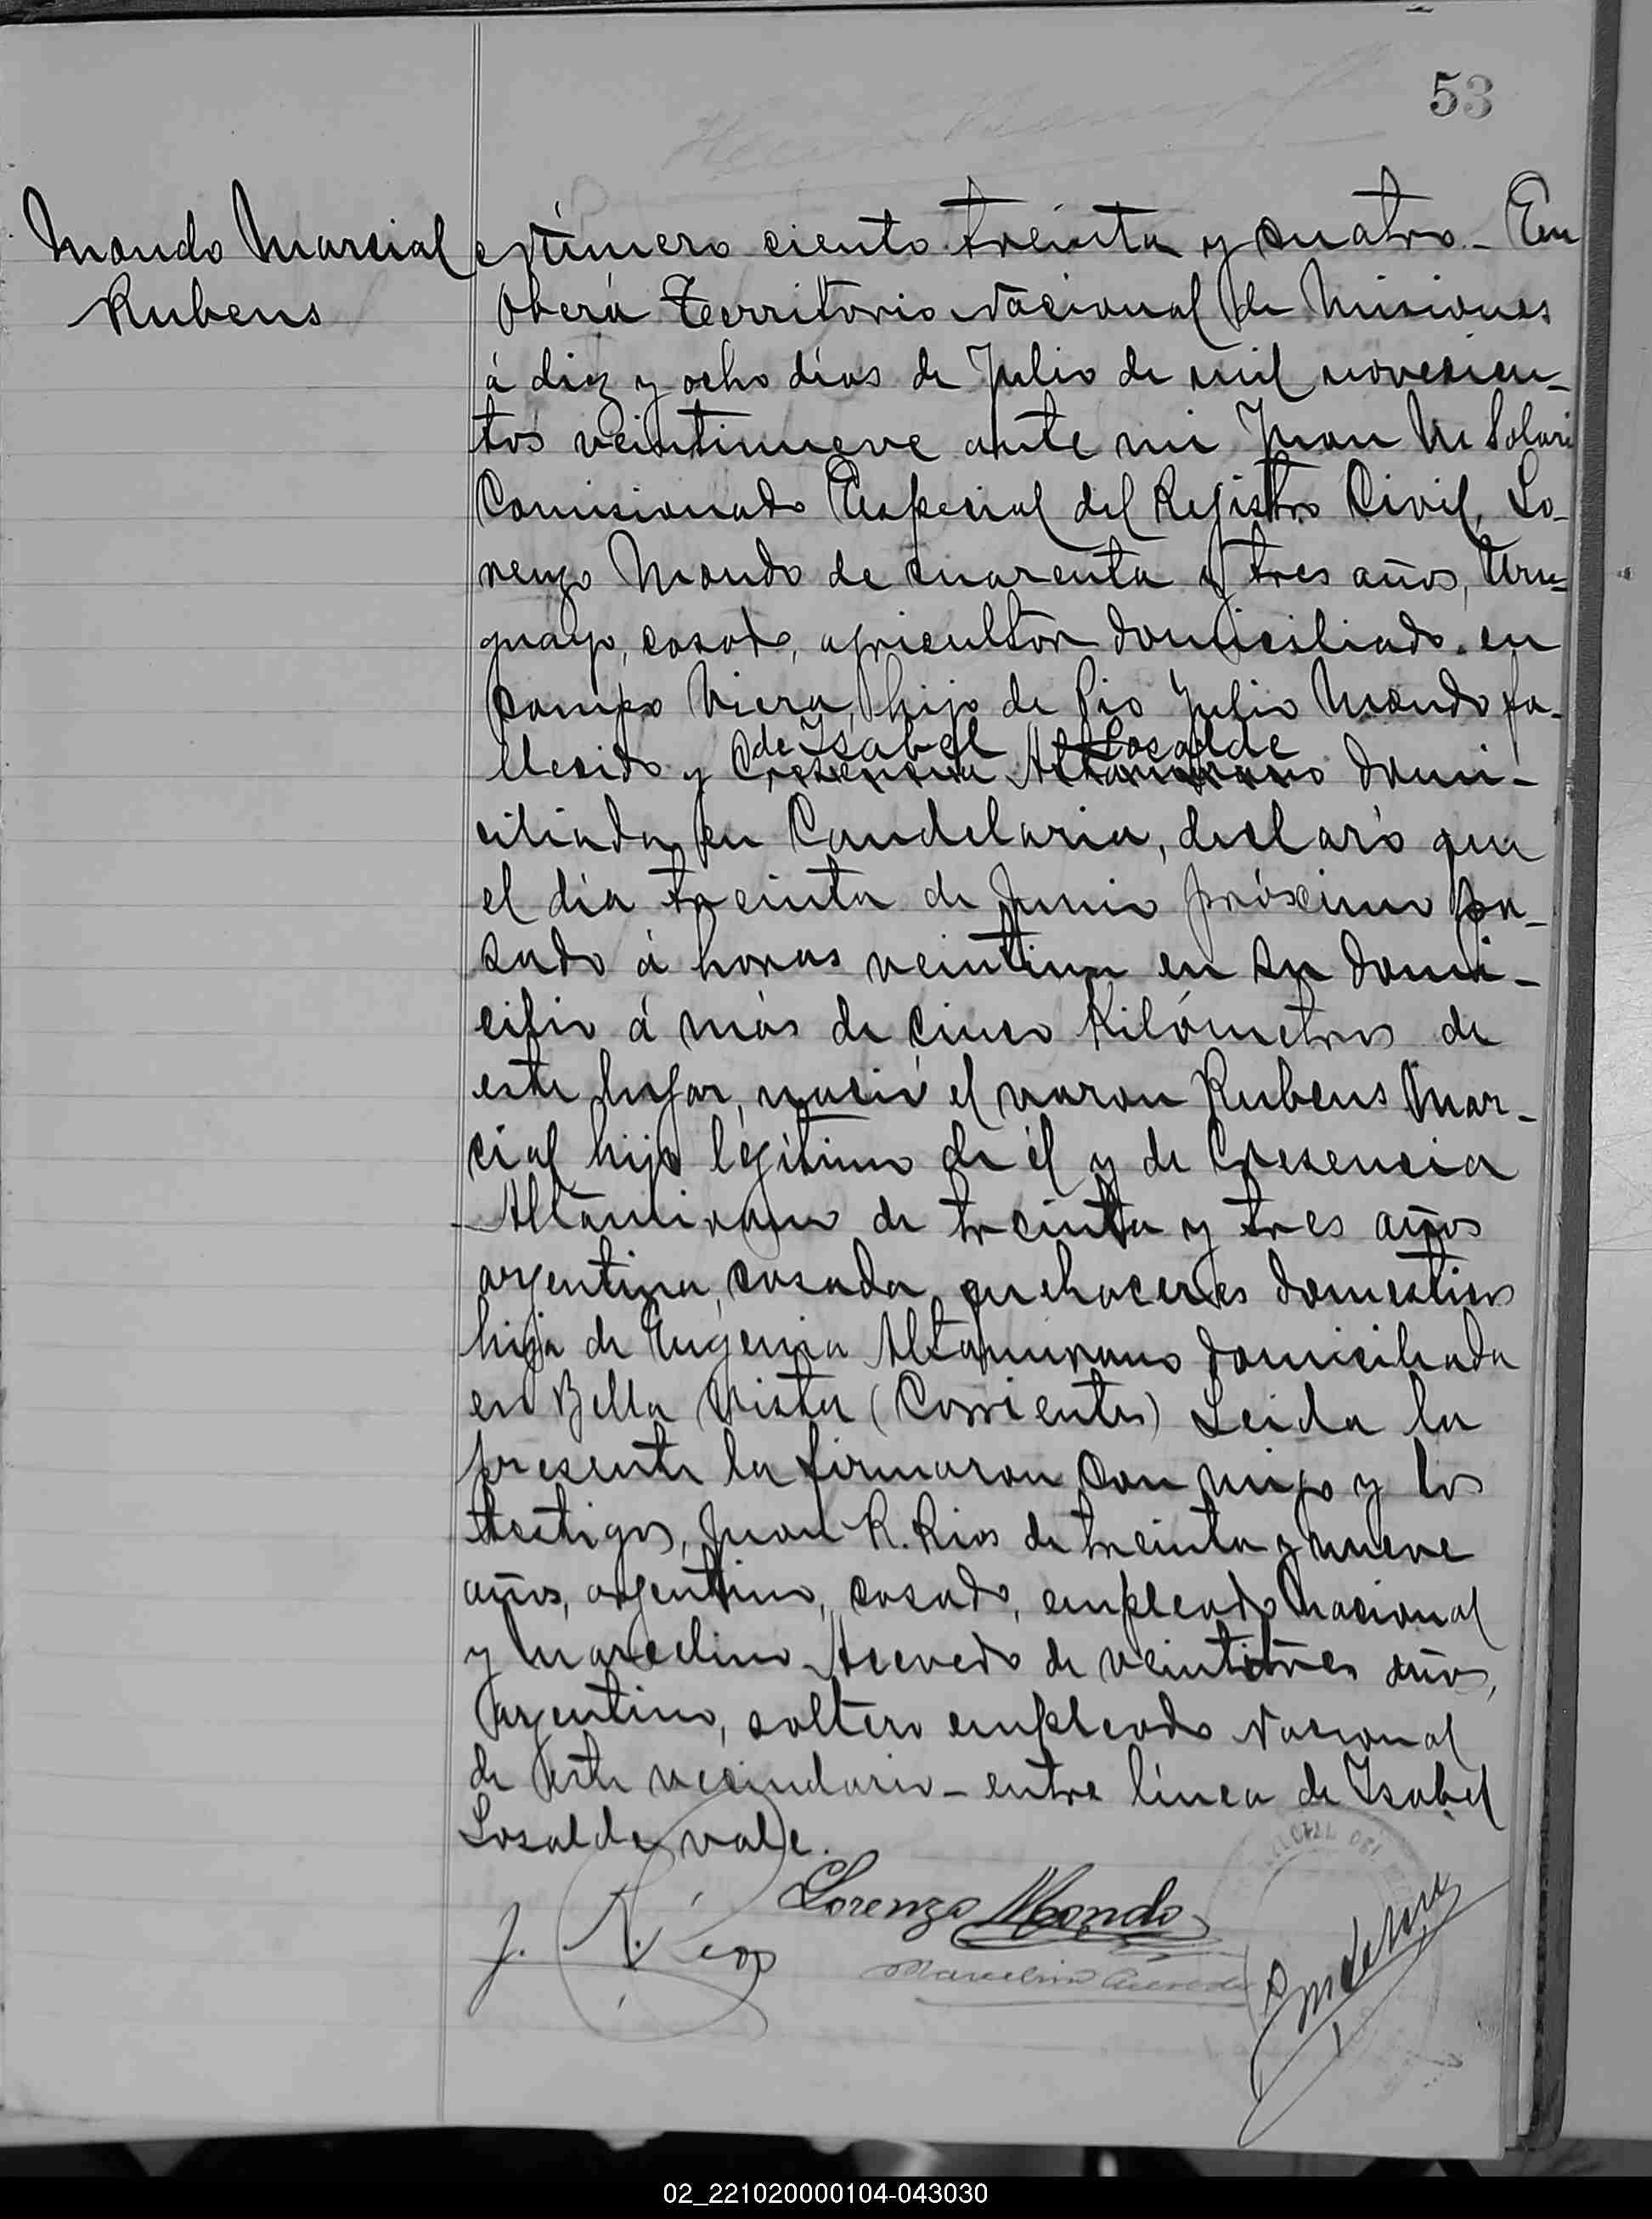 53
Mondo Marcial
Rubens
Número ciento treinta y cuatro - En
Oberá Territorio Nacional de Misiones
á diez y ocho días de Julio de mil novecien-
tos veintinueve ante mi Juan M Solari
Comisionado Especial del Rejistro Civil, Lo-
renzo Mondo de cuarenta y tres años, Uru-
guayo, casado, agricultor domiciliado en
Campo Viera, hijo de Pio Julio Mondo fa-
de Isabel Losalde
llecido y Cresencia Altamirano domi-
ciliada en Candelaria, declaró que
el día treinta de Junio próximo pa-
sado á horas veintiuna en su domi-
cilio á más de cinco Kilómetros de
este lugar, nació el varon Rubens Mar-
cial hijo légitimo de él y de Cresencia
Altamirano de treinta y tres años
argentina, casada, quehaceres domesticos
hija de Eugenia Altamirano domiciliada
en Bella Vista (Corrientes) Leida la
presente la firmaron con migo y los
testigos, Juan R. Rios de treinta y nueve
años, argentino, casado, empleado Nacional
y Marcelino Acevedo de veintitres años,
argentino, soltero empleado Nacional
de este vecindario - entre línea de Isabel
Losalde vale.
Lorenzo Mondo
J. R. Rios
Marcelino Acevedo
02_221020000104-043030